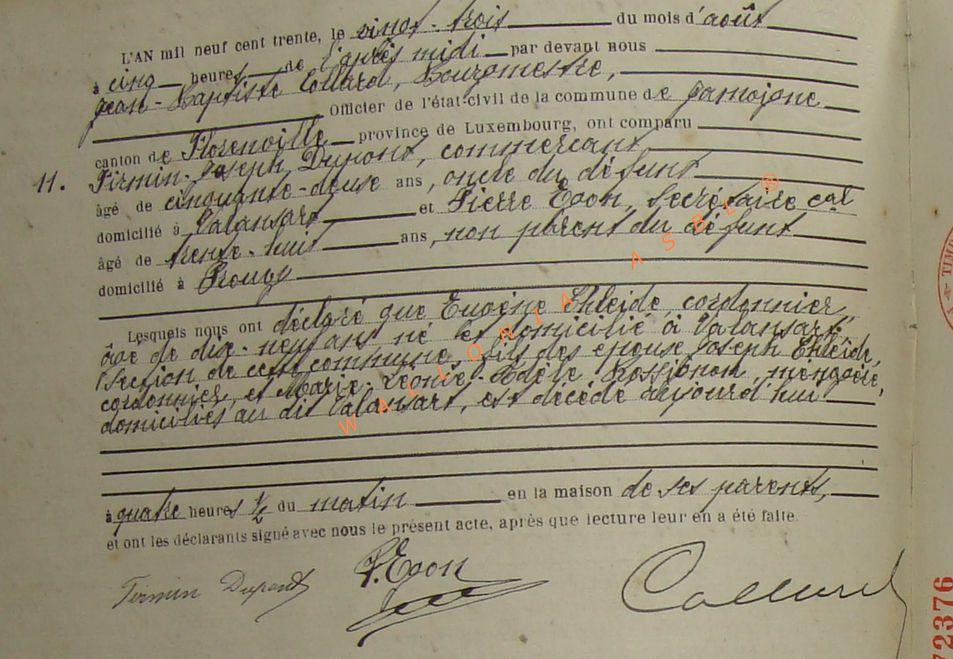 L'AN mil neuf cent trente, le vingt-trois du mois d'août
à cinq heures de l'après midi par devant nous
Jean-Baptiste Collard, Bourgmestre,
Officier de l'état-civil de la commune de Jamoigne
canton de Florenville province de Luxembourg, ont comparu
11. Firmin-Joseph Dupont, commerçant
âgé de cinquante-deux ans, oncle du défunt
domicilié à Valansart et Pierre Egon, Secrétaire cal
âgé de trente-huit ans, non parent du défunt
domicilié à Prouvy
Lesquels nous ont déclaré que Eugène Ehleide, cordonnier,
âgé de dix-neuf ans né et domicilié à Valansart
(section de cette commune, fils des épouse Joseph Ehleide,
cordonnier, et Marie-Léonie-Adèle Rossignon, ménagère,
domiciliés au dit Valansart, est décédé aujourd'hui
à quatre heures ½ du matin en la maison de ses parents,
et ont les déclarants signé avec nous le présent acte, après que lecture leur en a été faite.
Firmin Dupont P. Egon Collard
72376
TIMB